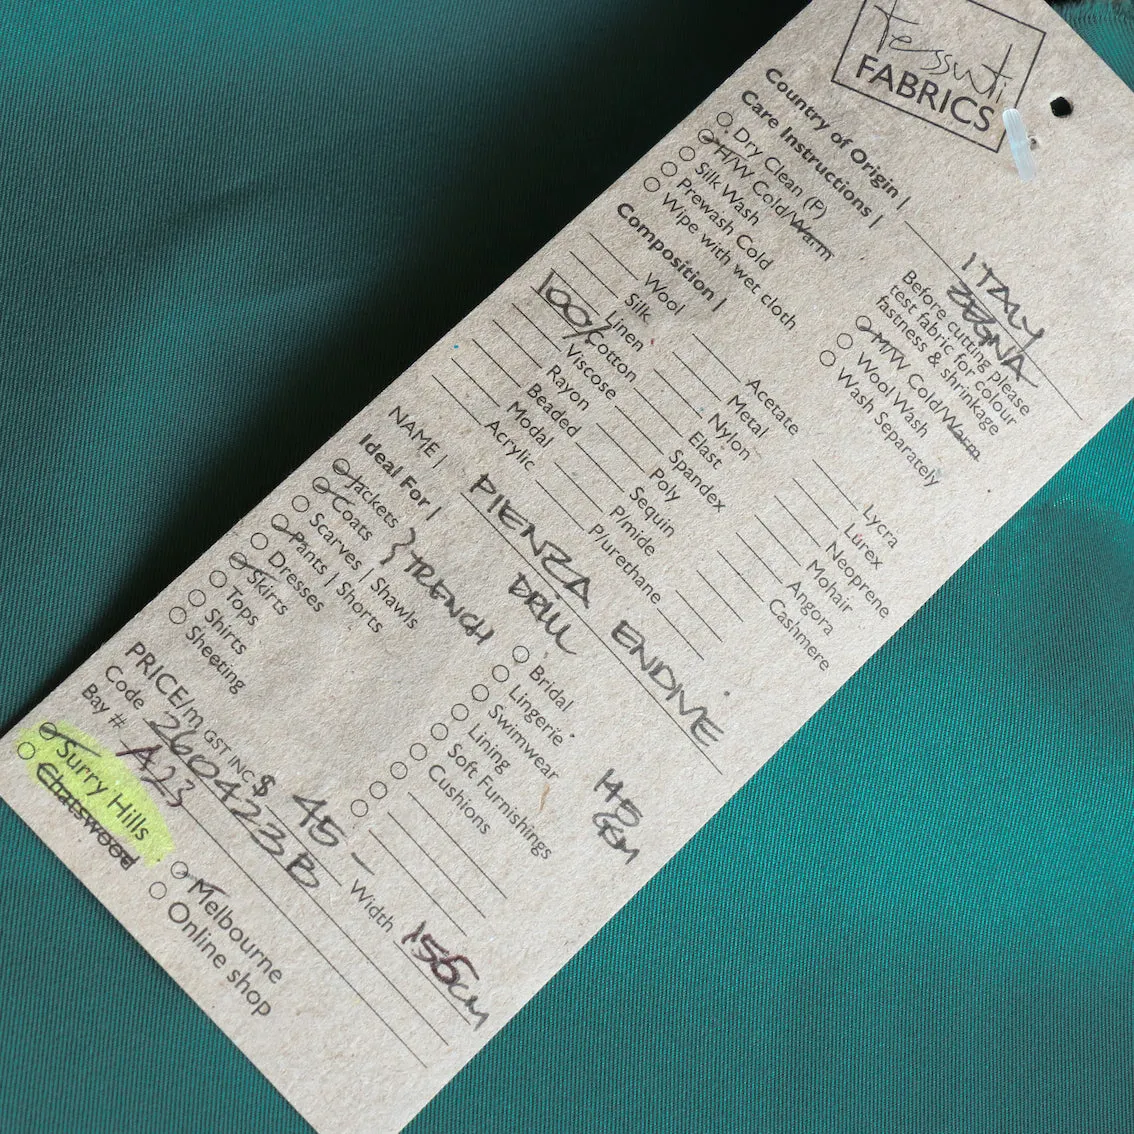 tessuti
FABRICS
Country of Origin | ITALY
ZEGNA
Care Instructions |
Dry Clean (P)
H/W Cold/Warm
Silk Wash
Prewash Cold
Wipe with wet cloth
Before cutting please
test fabric for colour
fastness & shrinkage
M/W Cold/Warm
Wool Wash
Wash Separately
Composition |
Wool
Silk
Linen
100% Cotton
Viscose
Rayon
Beaded
Modal
Acrylic
Acetate
Metal
Nylon
Elast
Spandex
Poly
Sequin
P/mide
P/urethane
Lycra
Lurex
Neoprene
Mohair
Angora
Cashmere
NAME | PIENZA ENDIVE
DRILL
Ideal For |
Jackets
Coats
} TRENCH
Scarves | Shawls
Pants | Shorts
Dresses
Skirts
Tops
Shirts
Sheeting
Bridal
Lingerie
Swimwear
Lining
Soft Furnishings
Cushions
145
GSM
PRICE/m GST INC $ 45 –
Width 156cm
Code 260423B
Bay # A23
Surry Hills
Chatswood
Melbourne
Online shop